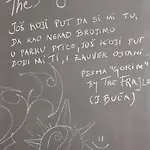 The
JOŠ KOJI PUT DA SI MI TU,
DA KAO NEKAD BROJIMO
U PARKU PTICE, JOŠ KOJI PUT
DOĐI MI TI, I ZAUVEK OSTANI
PESMA "GORIM"
BY THE FRAJLE
(I BUČA)